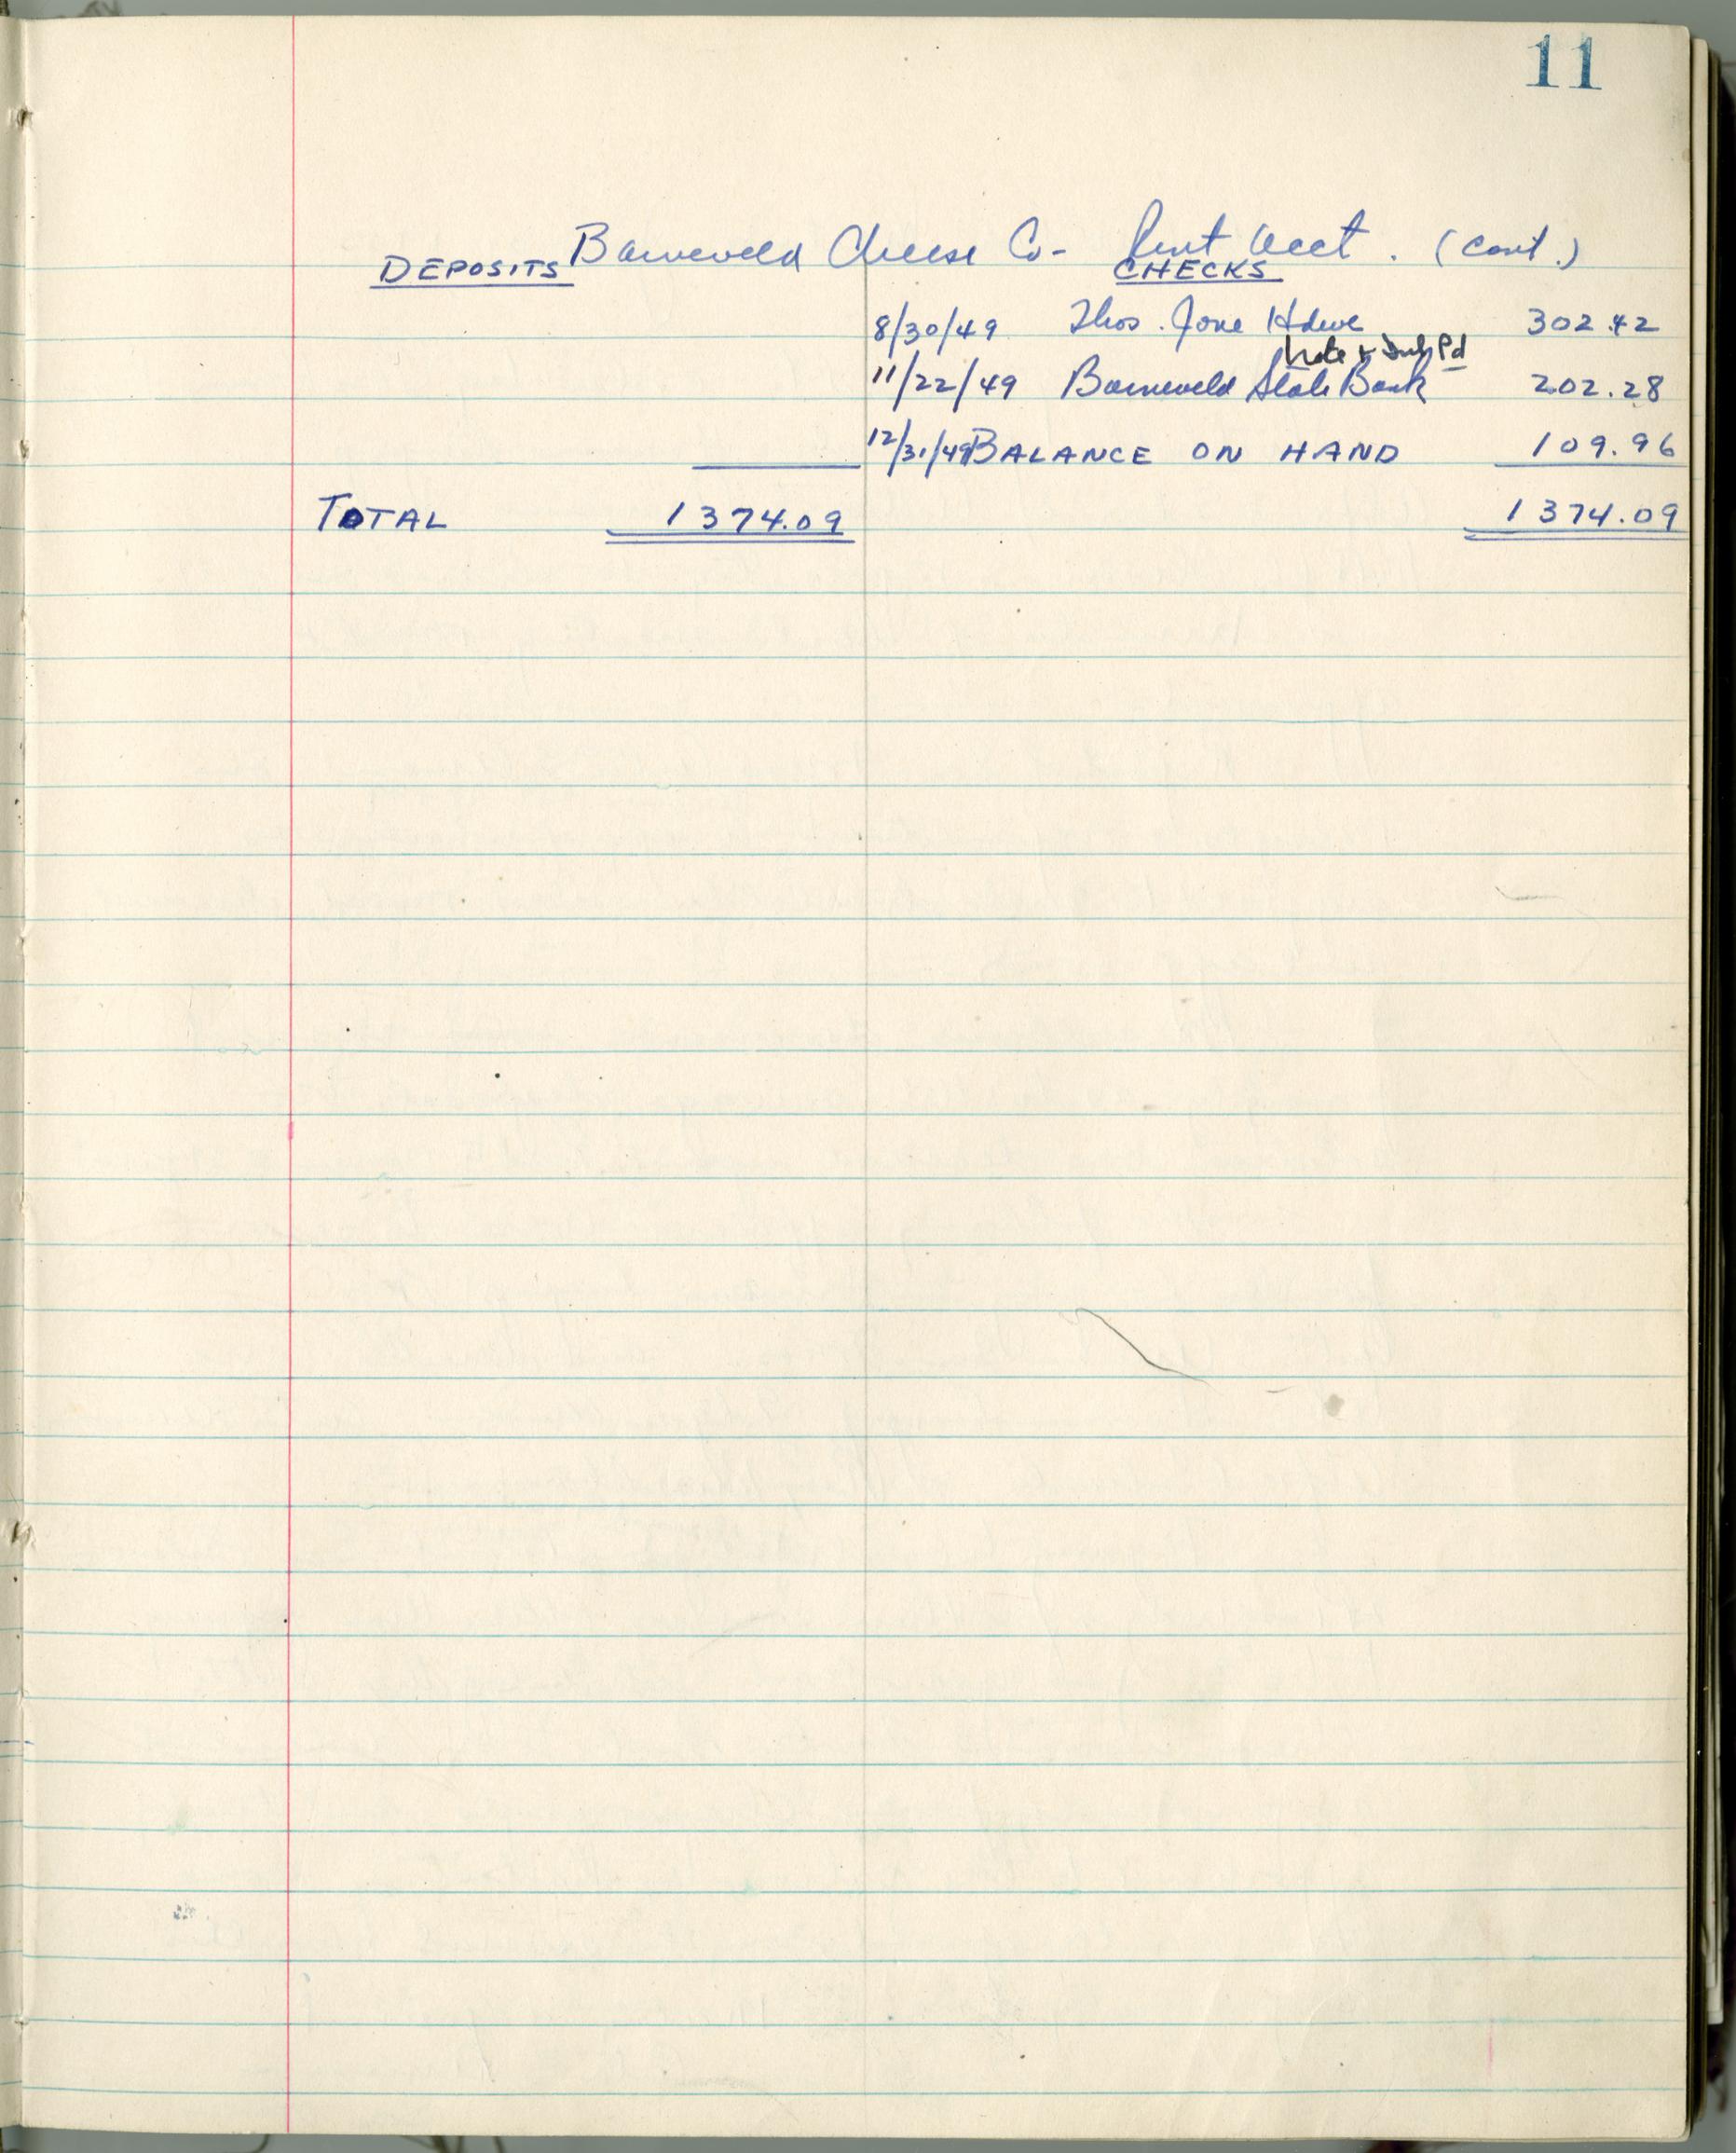 11
Barneveld Cheese Co- Rent Acct. (cont.)
DEPOSITS CHECKS
8/30/49 Thos. Jone Hdwe 302.42
Note & Int Pd
11/22/49 Barneveld State Bank 202.28
12/31/49 BALANCE ON HAND 109.96
TOTAL 1374.09 1374.09